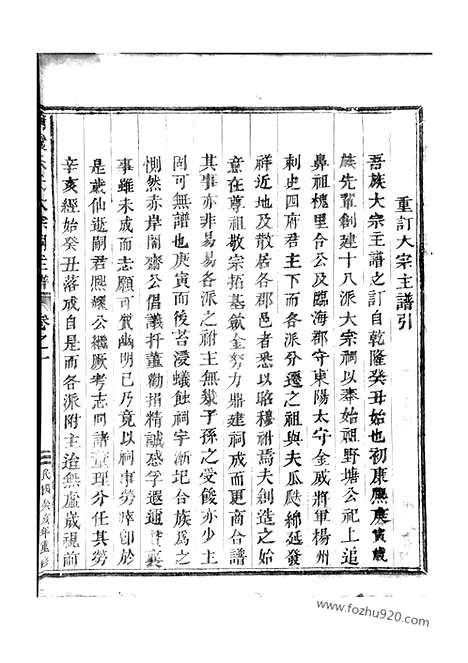 重訂大宗主譜引
吾族大宗主譜之訂自乾隆癸丑始也初康熙庚寅歲
族先輩創建十八派大宗祠以奉始祖野塘公祀上追
鼻祖槐里令公及臨海郡守東陽太守金威將軍楊州
刺史四府君主下而各派分遷之祖與夫瓜瓞綿延發
祥近地及散居各郡邑悉以昭穆祔焉夫創造之始
意在尊祖敬宗拓基歛金努力鼎建祠成而更商合譜
其事亦非易易各派之祔主無幾子孫之受餕亦少主
圖可也庚寅而後苦浸蟻蝕祠宇漸圮合族為之
惻然赤岸闇齋公倡議扦董勸捐精誠感孚遐邇
事雖未成而志願可質幽明已乃竟以祠事勞瘁卽於
是歲仙逝嗣君熙耀公繼厥考志同諸董理分任其勞
辛亥經始癸丑落成自是而各派附主迨無虛歲視前
大宗祠主譜
卷之一
民國癸亥年重修
www.fozhu920.com